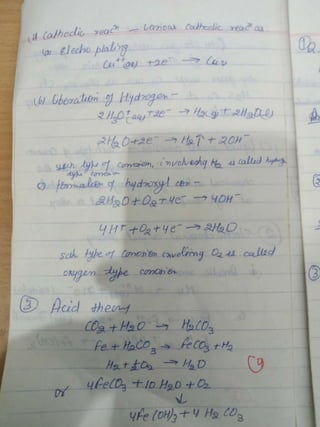 ii) Cathodic reacⁿ – Various cathodic reacⁿ as
(a) Electroplating
Cu⁺⁺(aq) + 2e⁻ → Cu↓
(b) liberation of Hydrogen –
2H₃O⁺(aq) + 2e⁻ → H₂(g) + 2H₂O(l)
2H₂O + 2e⁻ → H₂↑ + 2OH⁻
such type of corrosion, involving H₂ is called hydrogen
type corrosion
c) formation of hydroxyl ion –
2H₂O + O₂ + 4e⁻ → 4OH⁻
4H⁺ + O₂ + 4e⁻ → 2H₂O
such type of corrosion involving O₂ is called
oxygen type corrosion
③ Acid theory
CO₂ + H₂O → H₂CO₃
Fe + H₂CO₃ → FeCO₃ + H₂
H₂ + ½O₂ → H₂O
or 4FeCO₃ + 10H₂O + O₂
↓
4Fe(OH)₃ + 4H₂CO₃